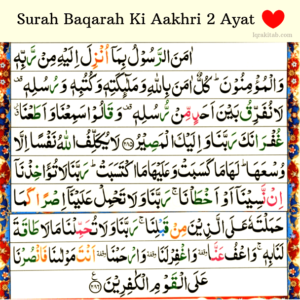 Surah Baqarah Ki Aakhri 2 Ayat
iqrakitab.com
اٰمَنَ الرَّسُوْلُ بِمَاۤ اُنْزِلَ اِلَيْهِ مِنْ رَّبِّهٖ
وَالْمُؤْمِنُوْنَ ؕ كُلٌّ اٰمَنَ بِاللّٰهِ وَمَلٰٓئِكَتِهٖ وَكُتُبِهٖ وَرُسُلِهٖ ۟
لَا نُفَرِّقُ بَيْنَ اَحَدٍ مِّنْ رُّسُلِهٖ ۟ وَقَالُوْا سَمِعْنَا وَاَطَعْنَا ۫
غُفْرَانَكَ رَبَّنَا وَاِلَيْكَ الْمَصِيْرُ ﴿۲۸۵﴾ لَا يُكَلِّفُ اللّٰهُ نَفْسًا اِلَّا
وُسْعَهَا ؕ لَهَا مَا كَسَبَتْ وَعَلَيْهَا مَا اكْتَسَبَتْ ؕ رَبَّنَا لَا تُؤَاخِذْنَاۤ
اِنْ نَّسِيْنَاۤ اَوْ اَخْطَاْنَا ۚ رَبَّنَا وَلَا تَحْمِلْ عَلَيْنَاۤ اِصْرًا كَمَا
حَمَلْتَهٗ عَلَى الَّذِيْنَ مِنْ قَبْلِنَا ۚ رَبَّنَا وَلَا تُحَمِّلْنَا مَا لَا طَاقَةَ
لَنَا بِهٖ ۚ وَاعْفُ عَنَّا ۥ وَاغْفِرْ لَنَا ۥ وَارْحَمْنَا ۥ اَنْتَ مَوْلٰىنَا فَانْصُرْنَا
عَلَى الْقَوْمِ الْكٰفِرِيْنَ ﴿۲۸۶﴾